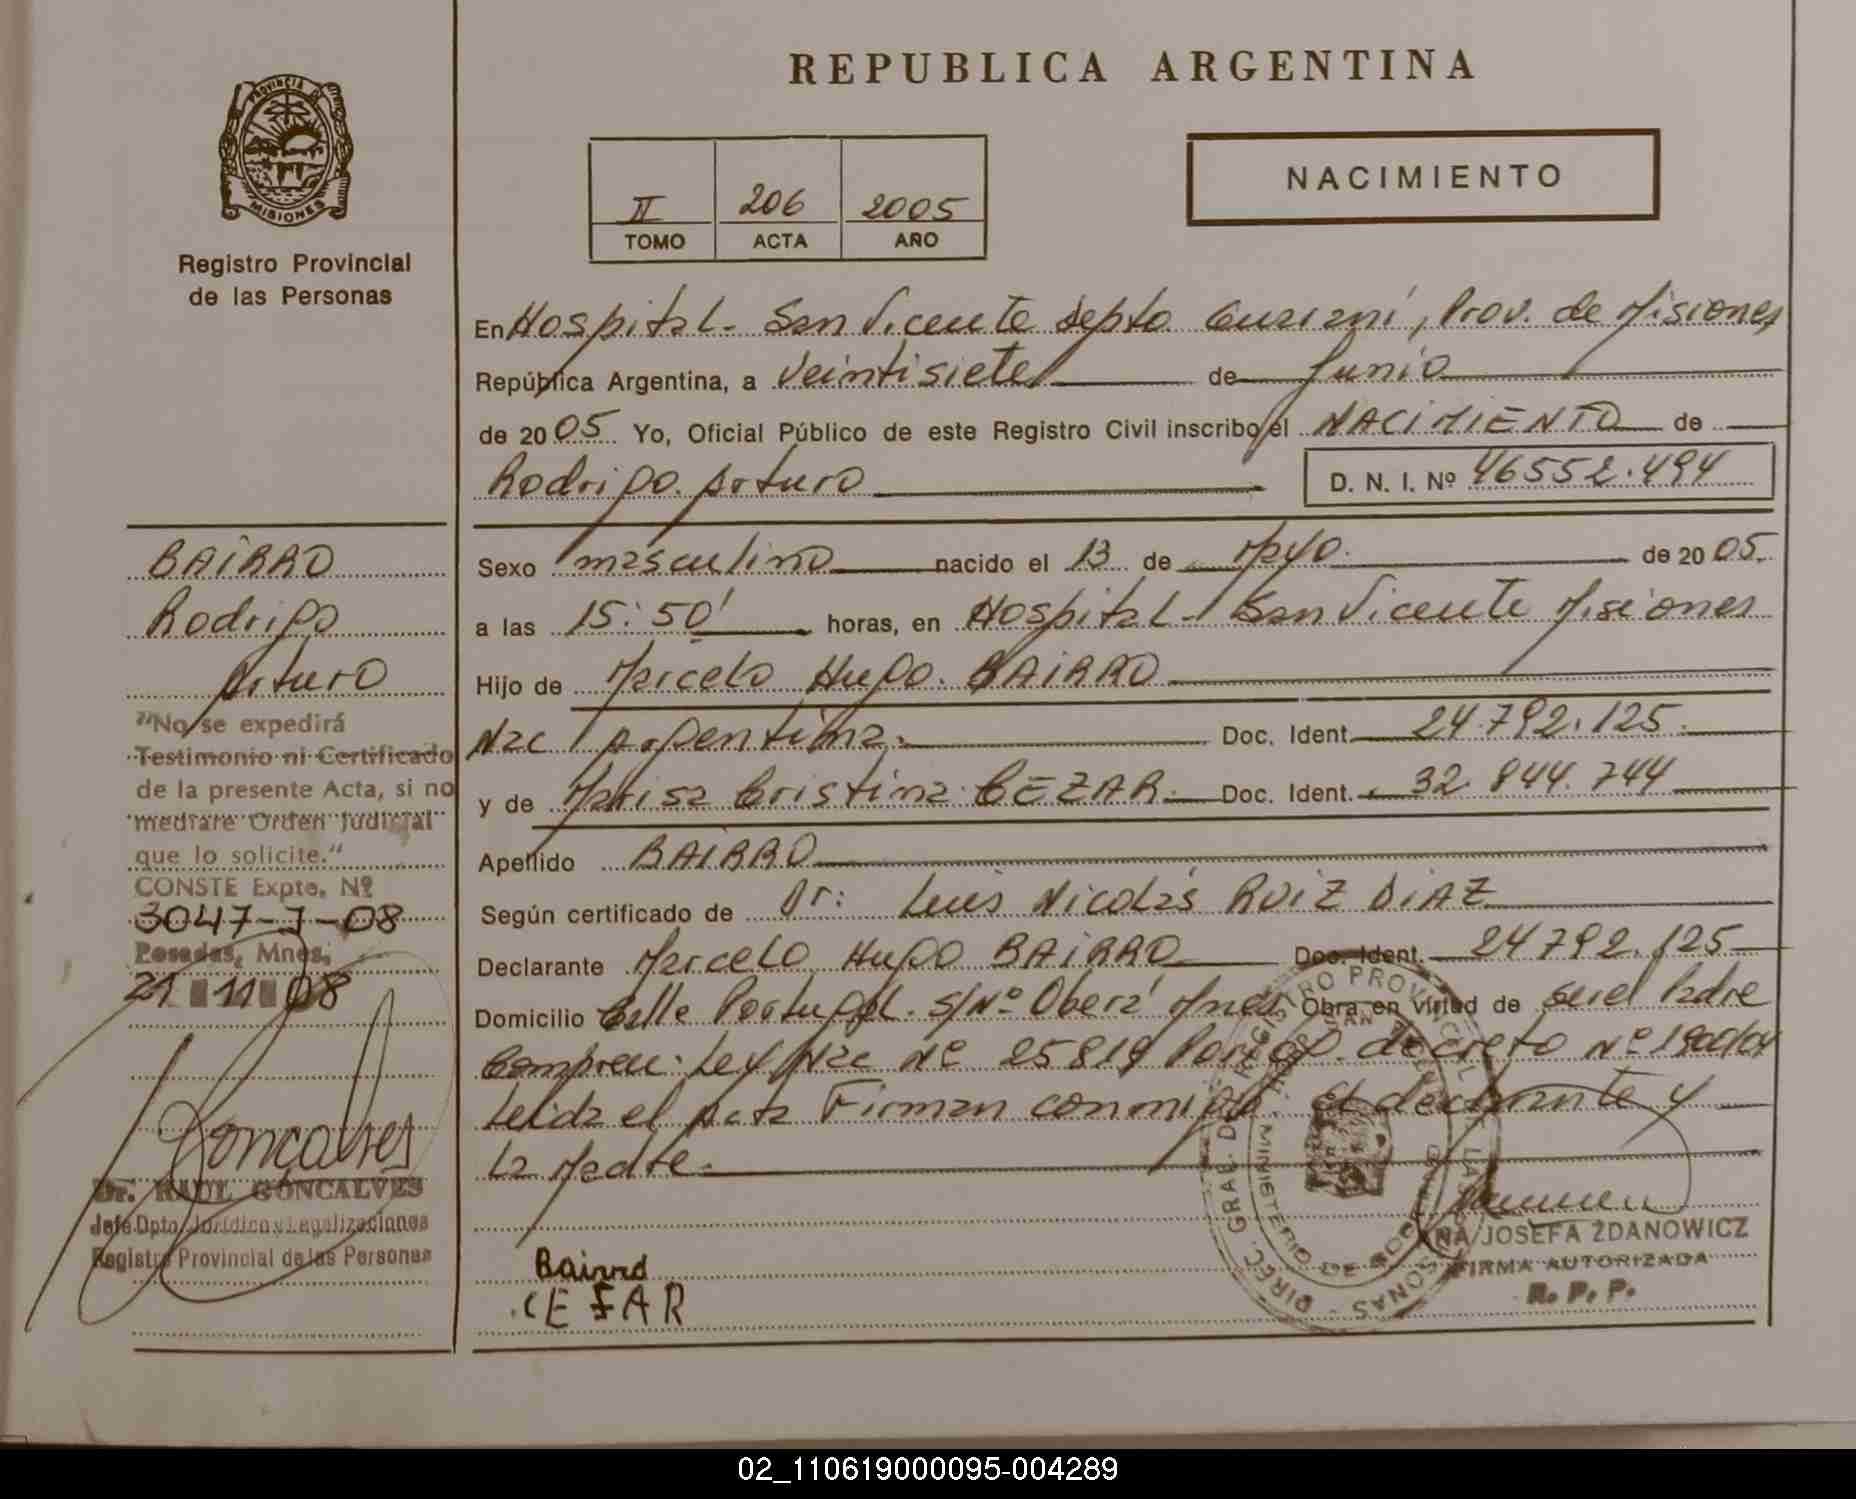 REPUBLICA ARGENTINA
PROVINCIA DE
MISIONES
Registro Provincial
de las Personas
II 206 2005
TOMO ACTA AÑO
NACIMIENTO
En Hospital - San Vicente Depto Guaraní, Prov. de Misiones
República Argentina, a veintisiete de Junio
de 2005 Yo, Oficial Público de este Registro Civil inscribo el NACIMIENTO de
Rodrigo Arturo
D. N. I. Nº 46552.494
BAIRRO
Rodrigo
Arturo
"No se expedirá
Testimonio ni Certificado
de la presente Acta, si no
mediare Orden Judicial
que lo solicite."
CONSTE Expte. Nº
3047-J-08
Posadas, Mnes,
21 11 08
Goncalves
Dr. RAUL GONCALVES
Jefe Dpto. Jurídico y Legalizaciones
Registro Provincial de las Personas
Sexo masculino nacido el 13 de Mayo de 2005
a las 15:50' horas, en Hospital - San Vicente Misiones
Hijo de Marcelo Hugo BAIRRO
Nac Argentina Doc. Ident. 24.792.125
y de Marisa Cristina CEZAR Doc. Ident. 32.844.744
Apellido BAIRRO
Según certificado de Dr: Luis Nicolás RUIZ DIAZ
Declarante Marcelo Hugo BAIRRO Doc. Ident. 24792.125
Domicilio Calle Portugal S/Nº Oberá Mnes Obra en virtud de ser el Padre
Compren. Ley Nac Nº 25819 decreto Nº
Leida el Acta Firman conmigo el declarante y
La Madre.
Bairro
CEZAR
DIREC. GRAL. DEL REGISTRO PROVINCIAL DE LAS PERSONAS
MINISTERIO DE GOBIERNO
SAN
ANA JOSEFA ZDANOWICZ
FIRMA AUTORIZADA
R. P. P.
02_110619000095-004289